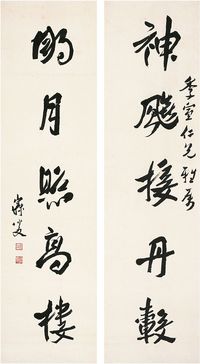 神飈接丹轂
季宣仁兄雅屬
明月照高樓